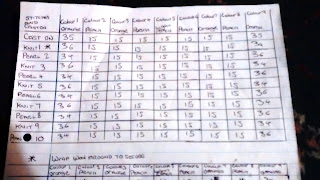 STITCHES AND PATTERN Colour 1 Orange Colour 2 Peach Colour 3 Orange Colour 4 Peach Colour 5 Orange Colour 6 Peach Colour 7 Orange Colour 8 Peach Colour 9 Orange
CAST ON 35 15 15 15 15 15 15 15 35
KNIT 1 * 36 15 15 15 15 15 15 15 34
PEARL 2 36 15 15 15 15 15 15 15 34
KNIT 3 36 15 15 15 15 15 15 15
PEARL 4 34 15 15 15 15 15 15 15 36
KNIT 5 36 15 15 15 15 15 15 15 34
PEARL 6 34 15 15 15 15 15 15 15 36
KNIT 7 36 15 15 15 15 15 15 15 34
PEARL 8 34 15 15 15 15 15 15 15 36
KNIT 9 36 15 15 15 15 15 15 15 34
10 34 15 15 15 15 15 15 15 36
* WRAP WOOL AROUND TO SECURE
Colour 1 Orange Colour 2 Peach